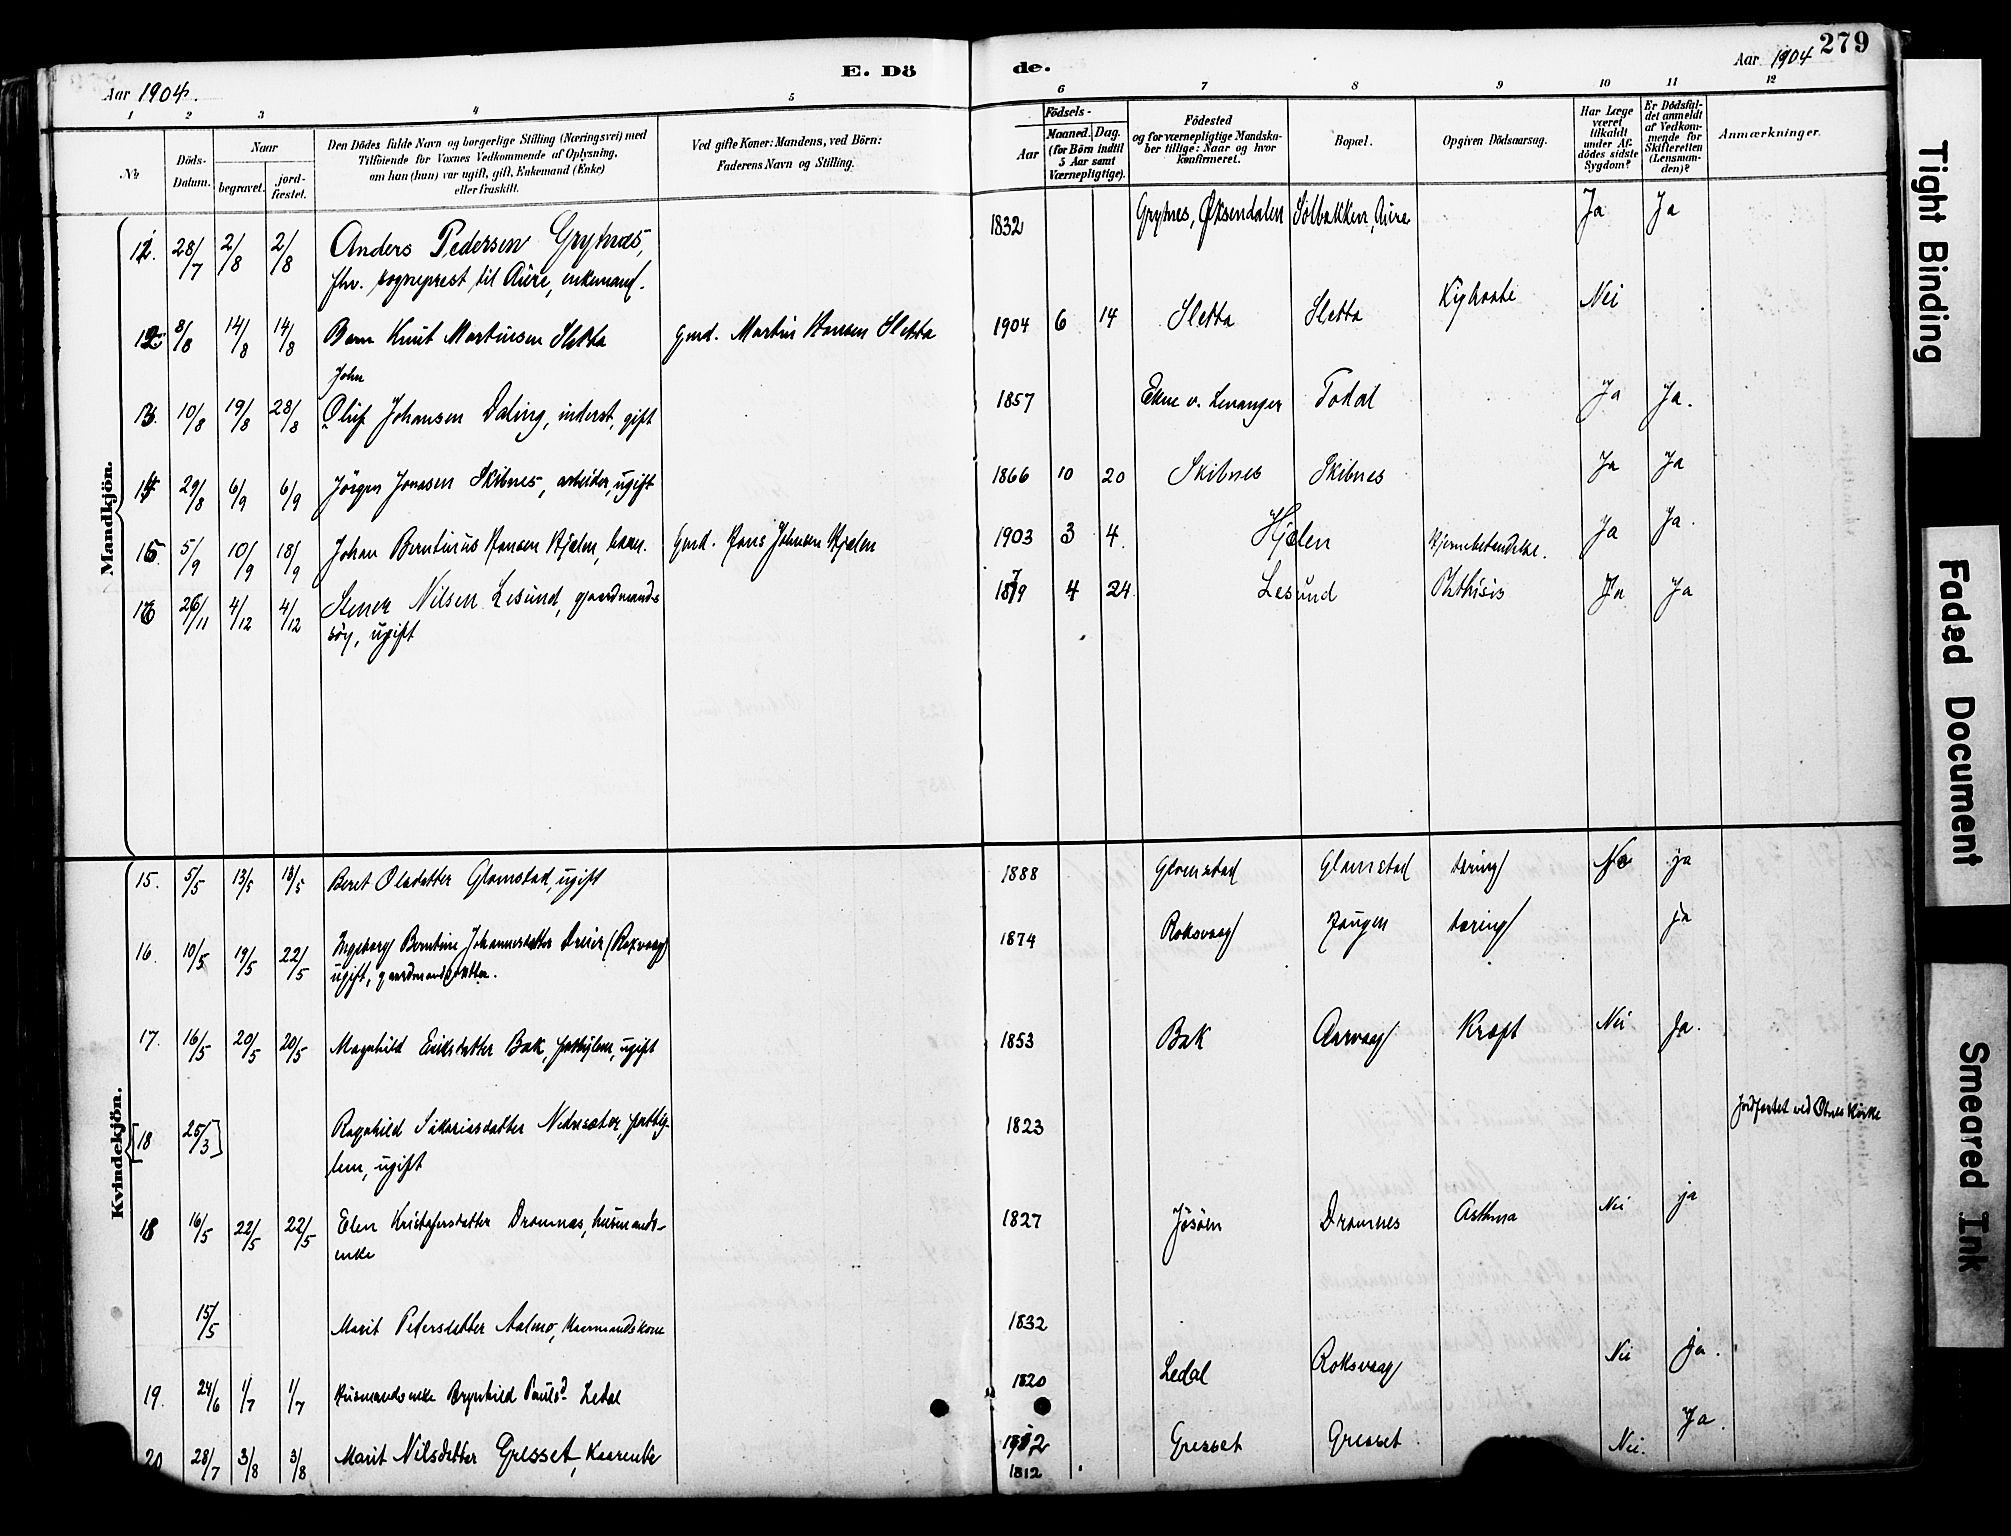 E. Dö de.
279
Aar 1904.
Aar 1904
1 2 3 4 5 6 7 8 9 10 11 12
No
Döds-Datum.
Naar
begravet.
jord-fæstet.
Den Dödes fulde Navn og borgerlige Stilling (Næringsvei) med
Tilföiende for Voxnes Vedkommende af Oplysning,
om han (hun) var ugift, gift, Enkemand (Enke)
eller fraskilt.
Ved gifte Koner: Mandens, ved Börn:
Faderens Navn og Stilling.
Födsels-
Aar
Maaned. Dag.
(for Börn indtil
5 Aar samt
Værnepligtige).
Födested
og for værnepligtige Mandska-
ber tillige: Naar og hvor
konfirmeret.
Bopæl.
Opgiven Dödsaarsag.
Har Læge
været
tilkaldt
under Af-
dödes sidste
Sygdom?
Er Dödsfal-
det anmeldt
af Vedkom-
mende for
Skifteretten
(Lensman-
den)?
Anmærkninger.
Mandkjön.
11. 28/7 2/8 2/8 Anders Pedersen Grytnes, 1832 Grytnes, Øksendalen Solbakken, Aure Ja Ja
fhv. sogneprest til Aure, enkemand.
12. 8/8 14/8 14/8 Barn Knut Martinsen Sletta Gmd. Martin Hansen Sletta 1904 6 14 Sletta Sletta Kighoste Nei
John
13. 10/8 19/8 28/8 Oluf Johansen Daling, inderst, gift 1857 Ekne v. Levanger Todal Ja Ja.
14. 29/8 6/9 6/9 Jörgen Jonasen Skibnes, arbeider, ugift 1866 10 20 Skibnes Skibnes Ja Ja
15. 5/9 10/9 18/9 Johan Berntinus Hansen Hjelen, barn. Gmd. Hans Johnsen Hjelen 1903 3 4. Hjelen Hjernebetændelse. Ja Ja.
16 26/11 4/12 4/12 Stener Nilsen Lesund, gaardmands 1879 4 24 Lesund Phthisis Ja Ja
søn, ugift
Kvindekjön.
15. 5/5 13/5 13/5 Beret Olsdatter Glomstad, ugift 1888 Glomstad Glomstad tæring Nei ja
16. 10/5 19/5 22/5 Ingeborg Berntine Johannesdatter Dreier (Roxvaag) 1874 Roksvaag Haugen tæring ja
ugift, gaardmandsdatter.
17. 16/5 20/5 20/5 Magnhild Eriksdatter Bak, fattiglem, ugift 1853 Bak Aarvaag Kræft Nei Ja.
[18 25/3] Ragnhild Sakariasdatter Nedresæter, fattig- 1823 Jordfæstet ved Otnes Kirke
lem, ugift
18 16/5 22/5 22/5 Elen Kristofersdatter Dromnes, husmands- 1827 Jösöen Dromnes Asthma Nei ja
enke
15/5 Marit Pedersdatter Aalmo, kaarmandskone 1832
19. 24/6 1/7 1/7 Husmandsenke Brynhild Paulsd. Ledal 1820 Ledal Roksvaag Nei ja.
20 28/7 3/8 3/8 Marit Nilsdatter Gresset, kaarenke 1812 Gresset Gresset Nei. Ja
1812
Tight Binding
Faded Document
Smeared Ink